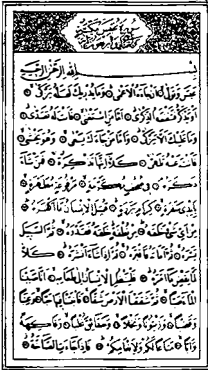 بِسْمِ اللهِ الرَّحْمٰنِ الرَّحِيمِ
عَبَسَ وَتَوَلّٰى اَنْ جَاءَهُ الْاَعْمٰى وَمَا يُدْرِيكَ لَعَلَّهُ يَزَّكّٰى
اَوْ يَذَّكَّرُ فَتَنْفَعَهُ الذِّكْرٰى اَمَّا مَنِ اسْتَغْنٰى فَاَنْتَ لَهُ تَصَدّٰى
وَمَا عَلَيْكَ اَلَّا يَزَّكّٰى وَاَمَّا مَنْ جَاءَكَ يَسْعٰى وَهُوَ يَخْشٰى
فَاَنْتَ عَنْهُ تَلَهّٰى كَلَّا اِنَّهَا تَذْكِرَةٌ فَمَنْ شَاءَ
ذَكَرَهُ فِي صُحُفٍ مُكَرَّمَةٍ مَرْفُوعَةٍ مُطَهَّرَةٍ
بِاَيْدِي سَفَرَةٍ كِرَامٍ بَرَرَةٍ قُتِلَ الْاِنْسَانُ مَا اَكْفَرَهُ
مِنْ اَيِّ شَيْءٍ خَلَقَهُ مِنْ نُطْفَةٍ خَلَقَهُ فَقَدَّرَهُ ثُمَّ السَّبِيلَ
يَسَّرَهُ ثُمَّ اَمَاتَهُ فَاَقْبَرَهُ ثُمَّ اِذَا شَاءَ اَنْشَرَهُ كَلَّا
لَمَّا يَقْضِ مَا اَمَرَهُ فَلْيَنْظُرِ الْاِنْسَانُ اِلٰى طَعَامِهِ اَنَّا صَبَبْنَا
الْمَاءَ صَبًّا ثُمَّ شَقَقْنَا الْاَرْضَ شَقًّا فَاَنْبَتْنَا فِيهَا حَبًّا وَعِنَبًا
وَقَضْبًا وَزَيْتُونًا وَنَخْلًا وَحَدَائِقَ غُلْبًا وَفَاكِهَةً
وَاَبًّا مَتَاعًا لَكُمْ وَلِاَنْعَامِكُمْ فَاِذَا جَاءَتِ الصَّاخَّةُ